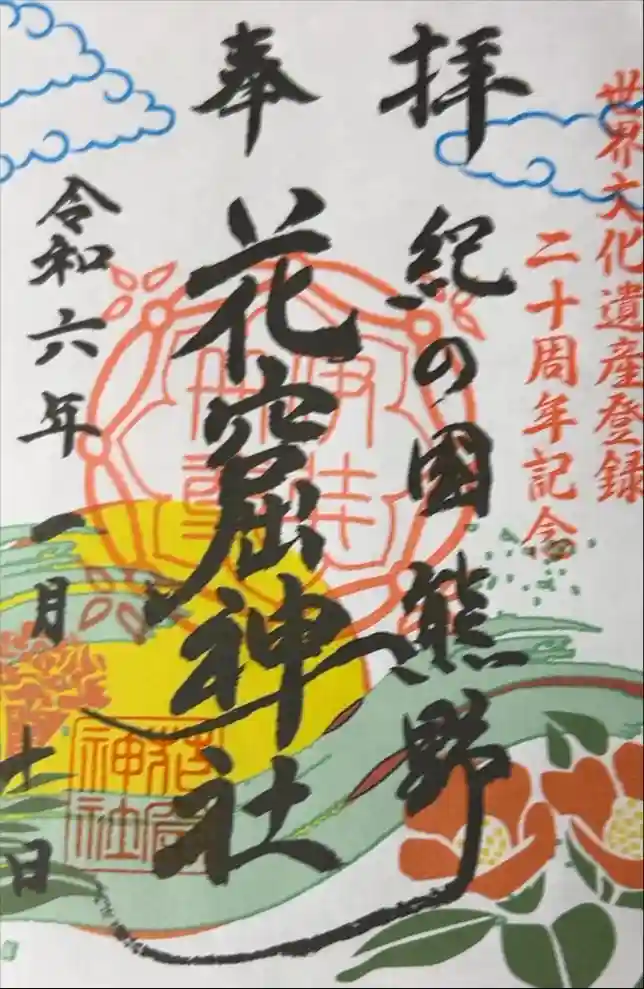 世界文化遺産登録
二十周年記念
奉拝
紀の國熊野
花窟神社
令和六年一月十日
花窟神社